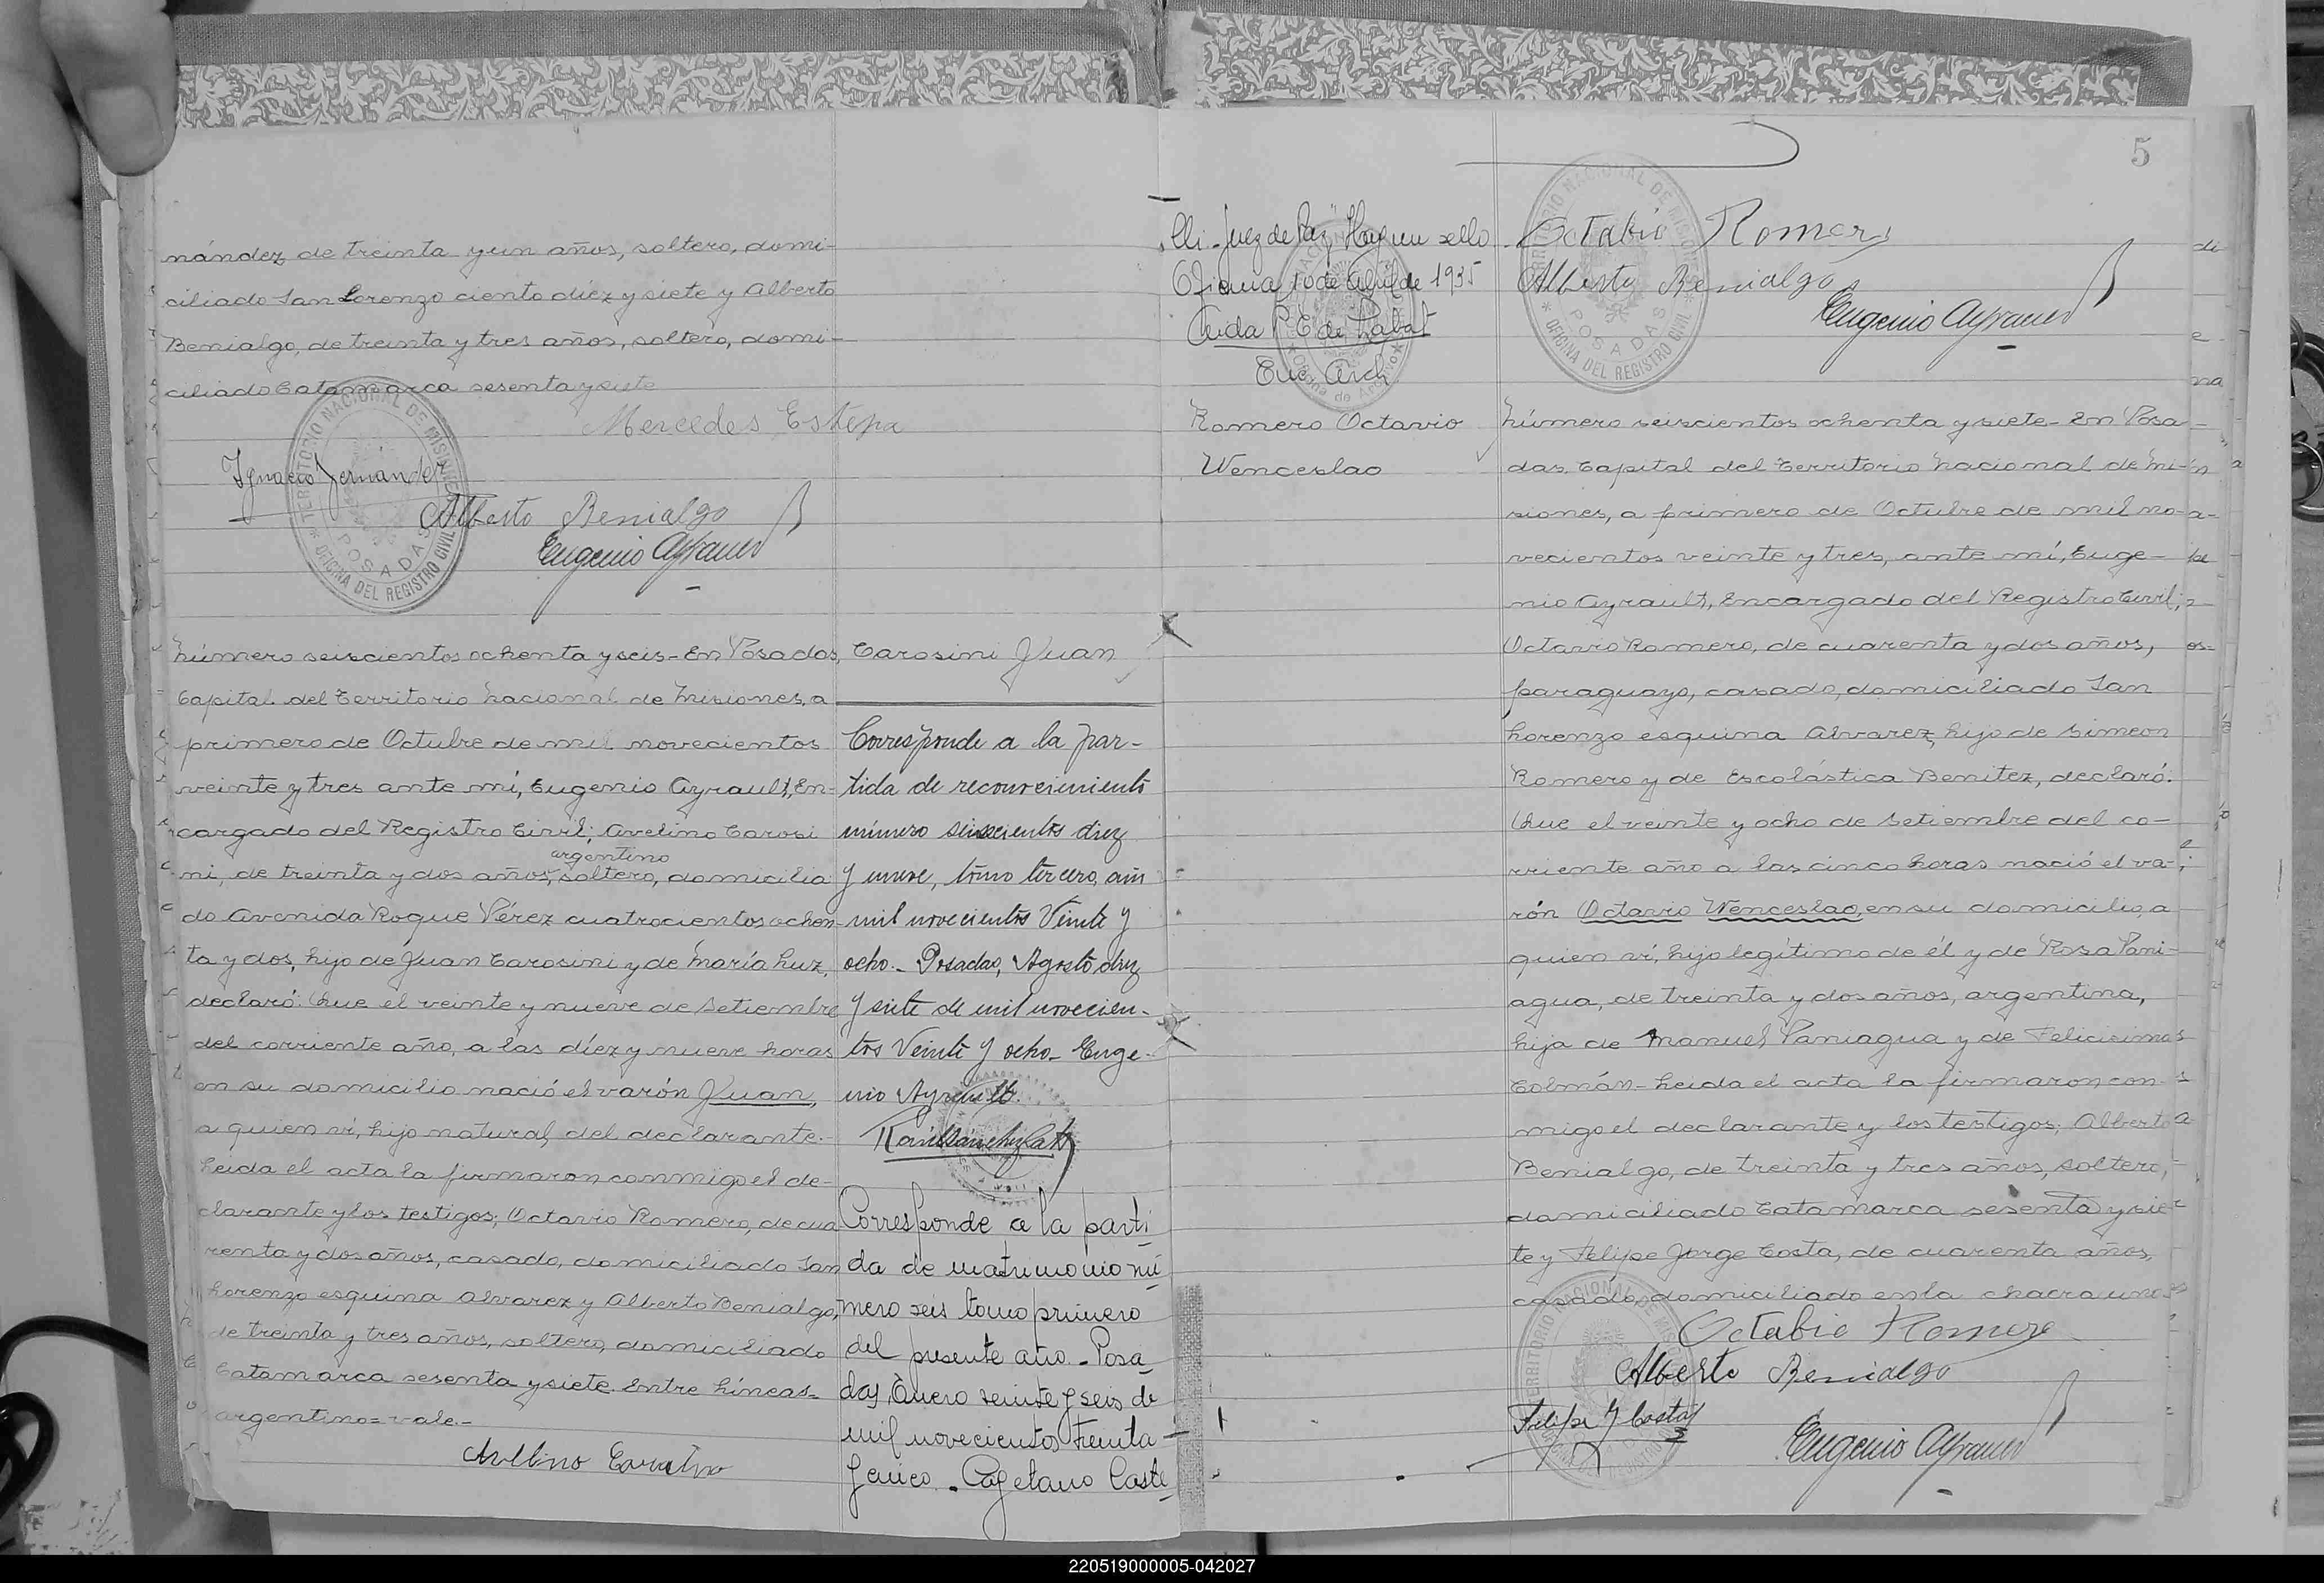 nández de treinta y un años, soltero, domi-
ciliado San Lorenzo ciento diez y siete y Alberto
Benialgo, de treinta y tres años, soltero, domi-
ciliado Catamarca sesenta y siete
Mercedes Estepa
Ignacio Fernández
Alberto Benialgo
Eugenio Ayrault
TERRITORIO NACIONAL DE MISIONES
* OFICINA DEL REGISTRO CIVIL *
POSADAS
Número seiscientos ochenta y seis - En Posadas,
Capital del Territorio Nacional de Misiones, a
primero de Octubre de mil novecientos
veinte y tres ante mí, Eugenio Ayrault, En-
cargado del Registro Civil; Avelino Carosi
argentino
ni, de treinta y dos años, soltero, domicilia
do Avenida Roque Pérez cuatrocientos ochen-
ta y dos, hijo de Juan Carosini y de María Luz,
declaró: Que el veinte y nueve de Setiembre
del corriente año, a las diez y nueve horas
en su domicilio nació el varón Juan,
a quien ví, hijo natural del declarante.-
Leida el acta la firmaron conmigo el de-
clarante y los testigos; Octavio Romero, de cua
renta y dos años, casado, domiciliado San
Lorenzo esquina Alvarez y Alberto Benialgo,
de treinta y tres años, soltero, domiciliado
Catamarca sesenta y siete. Entre líneas=
argentino=vale.-
Avelino Carosino
Carosini Juan
Corresponde a la par-
tida de reconocimiento
número seiscientos diez
y nueve, tomo tercero, año
mil novecientos Veinte y
ocho.- Posadas, Agosto diez
y siete de mil novecien-
tos Veinte y ocho- Euge-
nio Ayrault.
Corresponde a la parti
da de matrimonio nú
mero seis tomo primero
del presente año.- Posa
das, Enero veinte y seis de
mil novecientos Treinta
y cinco.- Cayetano Caste
5
lli - Juez de Paz "Hay un sello
Oficina, 10 de Abril de 1935
Aida P. E. de Labat
Enc. Arch
Romero Octavio
Wenceslao
Octabio Romero
Alberto Benialgo
Eugenio Ayrault
TERRITORIO NACIONAL DE MISIONES
* OFICINA DEL REGISTRO CIVIL *
POSADAS
Número seiscientos ochenta y siete - En Posa-
das, Capital del Territorio Nacional de Mi-
siones, a primero de Octubre de mil no-
vecientos veinte y tres, ante mí, Euge-
nio Ayrault, Encargado del Registro Civil;
Octavio Romero, de cuarenta y dos años,
paraguayo, casado, domiciliado San
Lorenzo esquina Alvarez, hijo de Simeon
Romero y de Escolástica Benitez, declaró:
Que el veinte y ocho de Setiembre del co-
rriente año a las cinco horas nació el va-
rón Octavio Wenceslao, en su domicilio, a
quien ví, hijo legítimo de él y de Rosa Pani-
agua, de treinta y dos años, argentina,
hija de Manuel Paniagua y de Felicisima
Colmán - Leida el acta la firmaron con-
migo el declarante y los testigos; Alberto
Benialgo, de treinta y tres años, soltero,
domiciliado Catamarca sesenta y sie-
te y Felipe Jorge Costa, de cuarenta años,
casado, domiciliado en la chacra uno
Octabio Romero
Alberto Benialgo
Felipe J Costa
Eugenio Ayrault
220519000005-042027